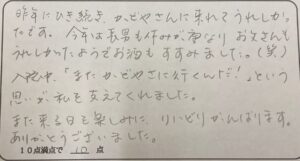 昨年にひき続き、かどやさんに来れてうれしかっ
たです。今年は長男も休みが重なり お父さんも
うれしかったようでお酒もすすみました。(笑)
入院中「またかどやさんに行くんだ!」という
思いが私を支えてくれました。
また来る日を楽しみに、リハビリがんばります。
ありがとうございました。
10点満点で 10 点